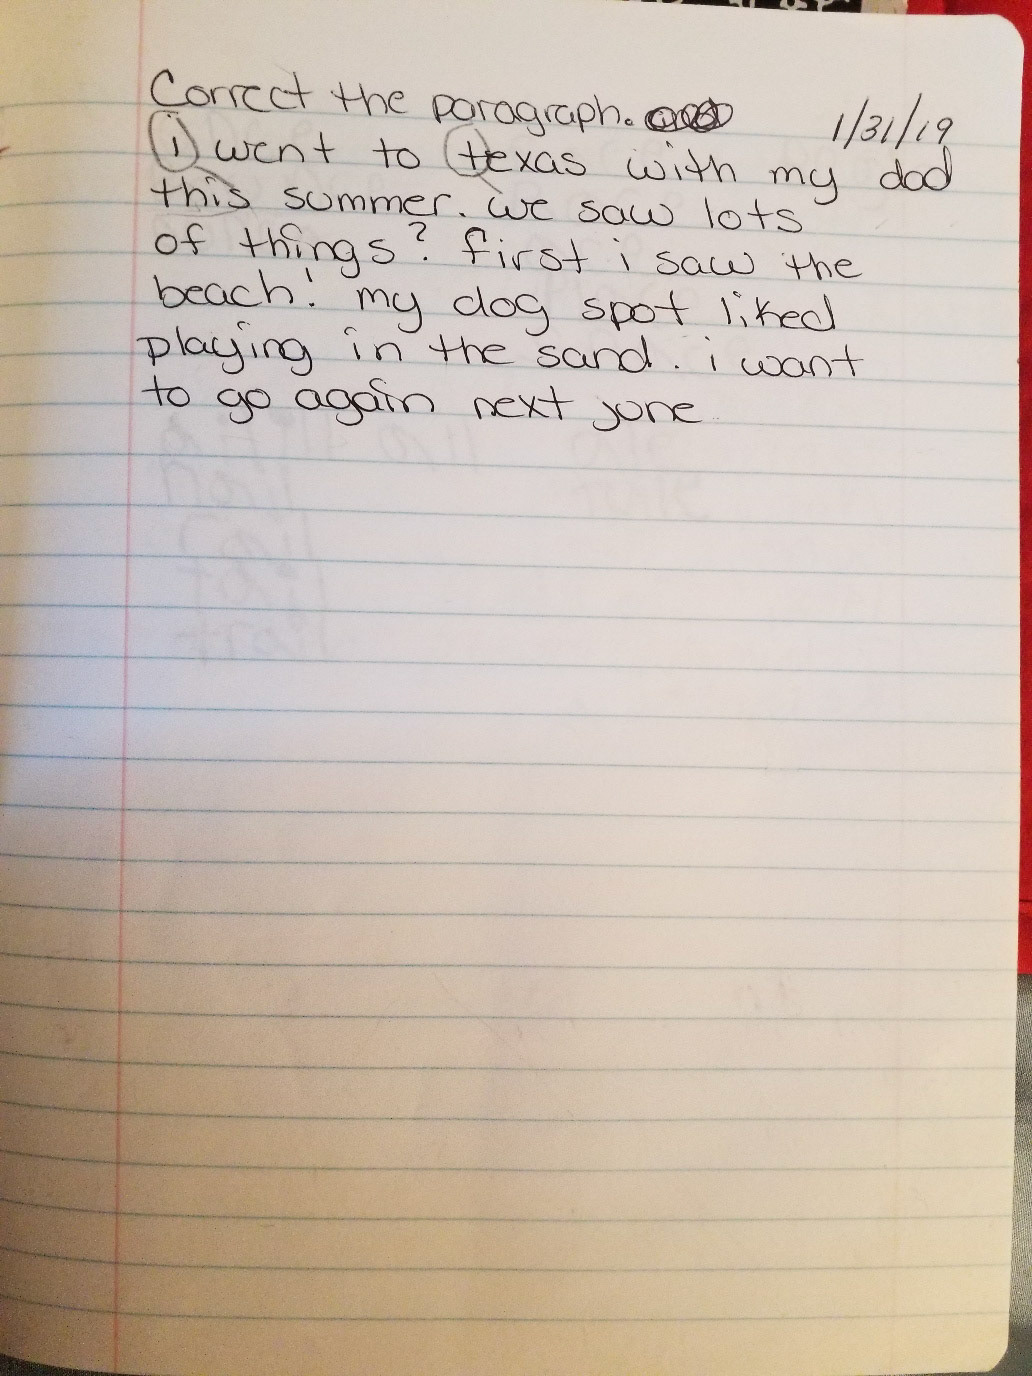 Correct the paragraph.
1/31/19
i went to texas with my dad
this summer. we saw lots
of things? first i saw the
beach! my dog spot liked
playing in the sand. i want
to go again next june